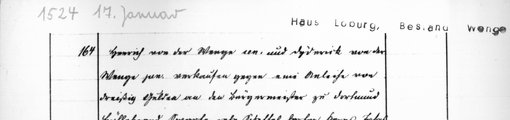 1524 17. Januar
Haus Loburg, Bestand Wenge
164 Henrich von der Wenge sen. und Dyderick von der
Wenge jun. verkaufen gegen eine Anleihe von
dreißig Gulden an den Bürgermeister zu Dortmund